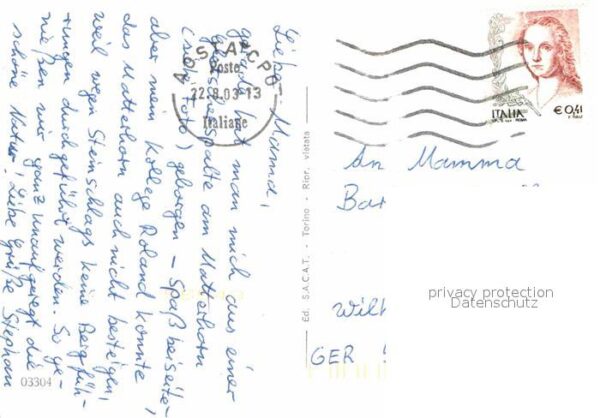 Liebe Mama,
gerade hat man mich aus einer
Gletscherspalte am Matterhorn
(siehe Foto) geborgen – Spaß beiseite –
aber mein Kollege Roland konnte
das Matterhorn auch nicht besteigen,
weil wegen Steinschlags keine Bergfüh-
rungen durchgeführt werden. So ge-
nießen wir ganz unaufgeregt die
schöne Natur! Liebe Grüße Stephan
AOSTA
CPO
Poste
22.8.03-13
Italiane
ITALIA
€ 0,41
Ed. S.A.C.A.T. - Torino - Ripr. vietata
An Mamma
Bar
Wilh
GER
privacy protection
Datenschutz
03304